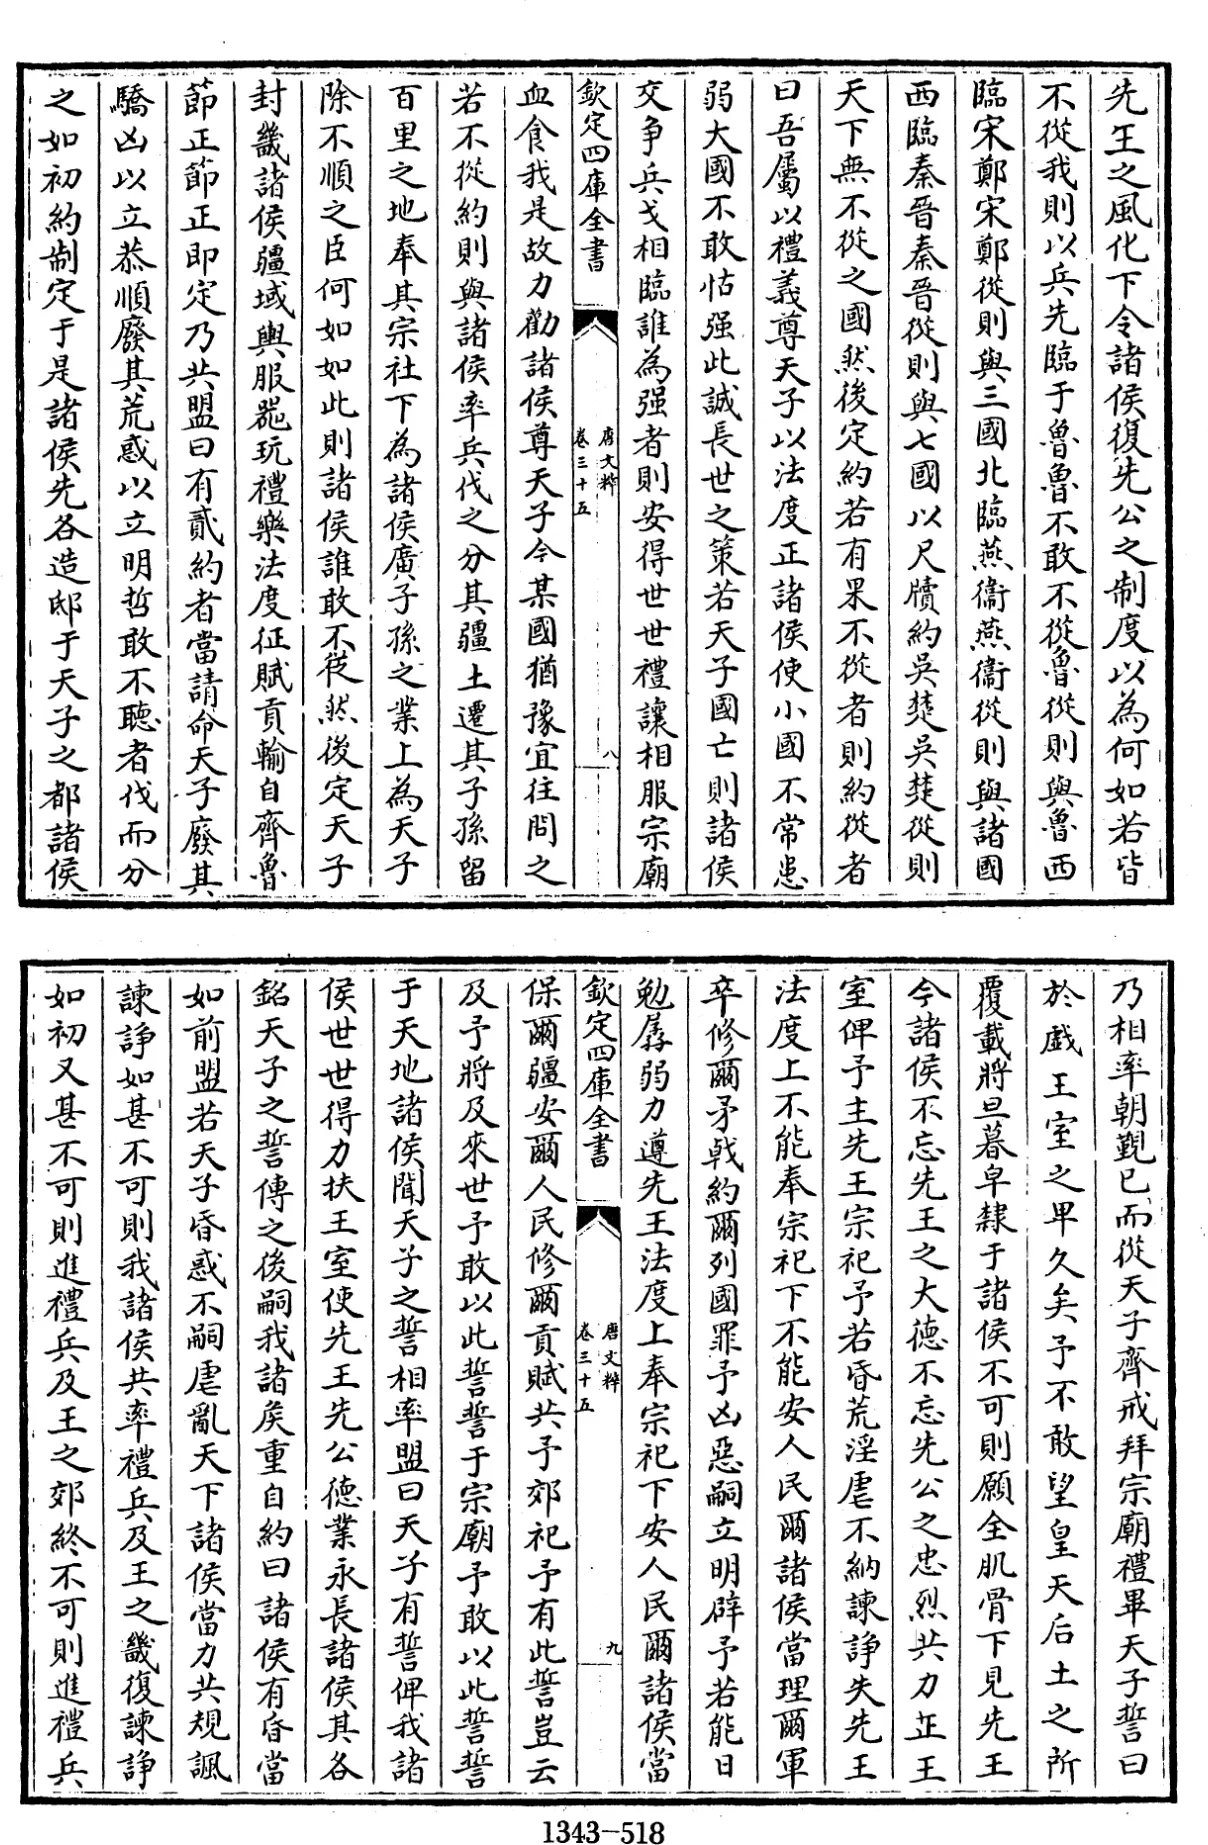 先王之風化下令諸侯復先公之制度以為何如若皆
不從我則以兵先臨于魯魯不敢不從魯從則與魯西
臨宋鄭宋鄭從則與三國北臨燕衞燕衞從則與諸國
西臨秦晉秦晉從則與七國以尺牘約吳楚吳楚從則
天下無不從之國然後定約若有果不從者則約從者
曰吾屬以禮義尊天子以法度正諸侯使小國不常患
弱大國不敢怙强此誠長世之策若天子國亡則諸侯
交爭兵戈相臨誰為强者則安得世世禮讓相服宗廟
欽定四庫全書
唐文粹
卷三十五
八
血食我是故力勸諸侯尊天子今某國猶豫宜往問之
若不從約則與諸侯率兵伐之分其疆土遷其子孫留
百里之地奉其宗社下為諸侯廣子孫之業上為天子
除不順之臣何如如此則諸侯誰敢不從然後定天子
封畿諸侯疆域輿服器玩禮樂法度征賦貢輸自齊魯
節正節正即定乃共盟曰有貳約者當請命天子廢其
驕凶以立恭順廢其荒惑以立明哲敢不聽者伐而分
之如初約制定于是諸侯先各造邸于天子之都諸侯
乃相率朝覲已而從天子齊戒拜宗廟禮畢天子誓曰
於戲王室之卑久矣予不敢望皇天后土之所
覆載將旦暮皁隸于諸侯不可則願全肌骨下見先王
今諸侯不忘先王之大德不忘先公之忠烈共力正王
室俾予主先王宗祀予若昏荒淫虐不納諫諍失先王
法度上不能奉宗祀下不能安人民爾諸侯當理爾軍
卒修爾矛戟約爾列國罪予凶惡嗣立明辟予若能日
勉孱弱力遵先王法度上奉宗祀下安人民爾諸侯當
欽定四庫全書
唐文粹
卷三十五
九
保爾疆安爾人民修爾貢賦共予郊祀予有此誓豈云
及予將及來世予敢以此誓誓于宗廟予敢以此誓誓
于天地諸侯聞天子之誓相率盟曰天子有誓俾我諸
侯世世得力扶王室使先王先公德業永長諸侯其各
銘天子之誓傳之後嗣我諸侯重自約曰諸侯有昏當
如前盟若天子昏惑不嗣虐亂天下諸侯當力共規諷
諫諍如甚不可則我諸侯共率禮兵及王之畿復諫諍
如初又甚不可則進禮兵及王之郊終不可則進禮兵
1343-518